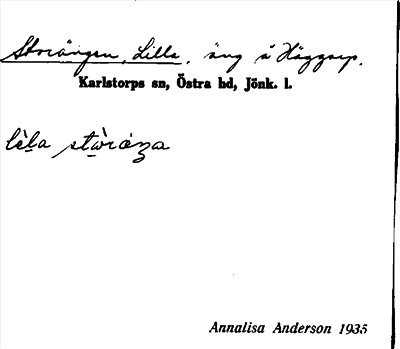 Storängen, Lilla, äng å Häggarp.
Karlstorps sn, Östra hd, Jönk. l.
Annalisa Anderson 1935